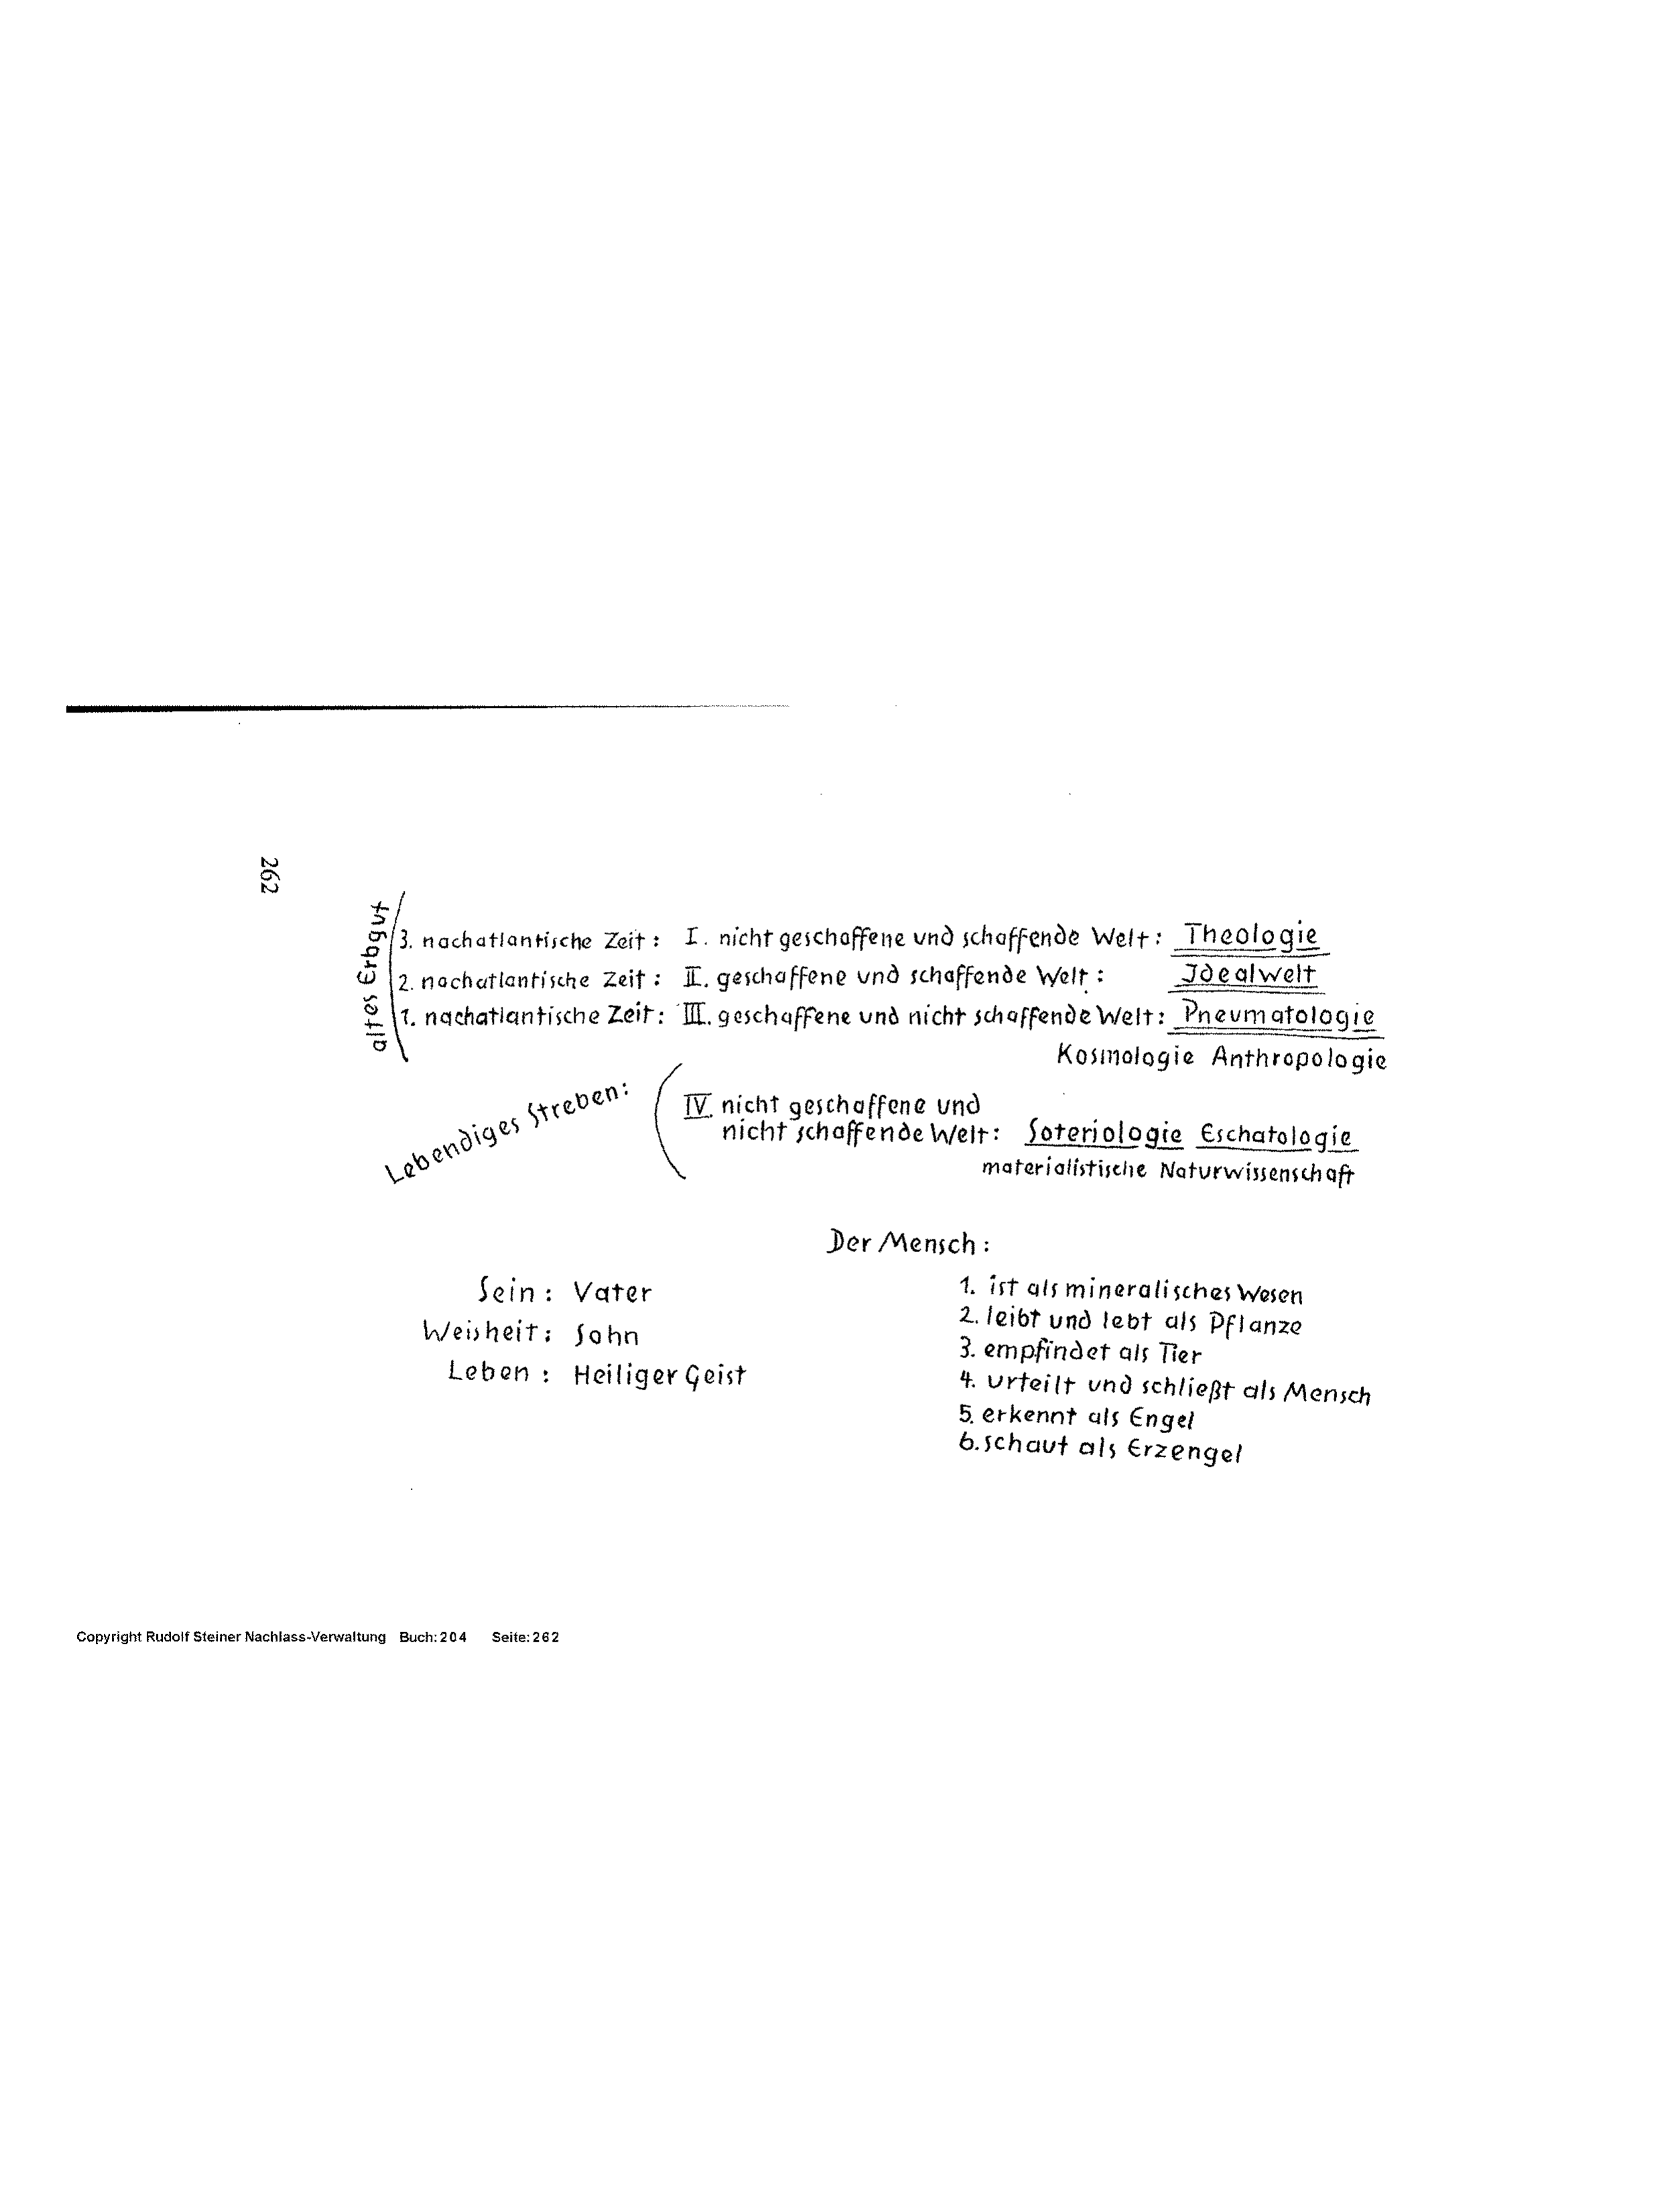 262
altes Erbgut
3. nachatlantische Zeit: I. nicht geschaffene und schaffende Welt: Theologie
2. nachatlantische Zeit: II. geschaffene und schaffende Welt: Idealwelt
1. nachatlantische Zeit: III. geschaffene und nicht schaffende Welt: Pneumatologie
Kosmologie Anthropologie
Lebendiges Streben:
IV. nicht geschaffene und
nicht schaffende Welt: Soteriologie Eschatologie
materialistische Naturwissenschaft
Sein: Vater
Weisheit: Sohn
Leben: Heiliger Geist
Der Mensch:
1. ist als mineralisches Wesen
2. leibt und lebt als Pflanze
3. empfindet als Tier
4. urteilt und schließt als Mensch
5. erkennt als Engel
6. schaut als Erzengel
Copyright Rudolf Steiner Nachlass-Verwaltung Buch: 204 Seite: 262